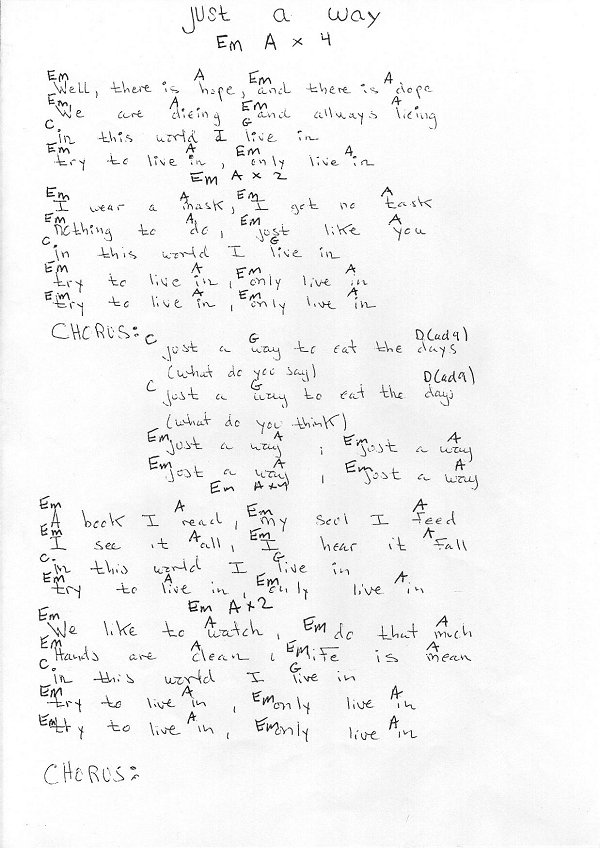 just a way
Em A x 4
Em A Em A
Well, there is hope, and there is dope
Em A Em A
We are dieing and allways lieing
C G
in this world I live in
Em A Em A
try to live in, only live in
Em A x 2
Em A Em A
I wear a mask, I got no task
Em A Em A
nothing to do, just like you
C G
in this world I live in
Em A Em A
try to live in, only live in
Em A Em A
try to live in, only live in
CHORUS:
C G D(ad9)
just a way to eat the days
(what do you say)
C G D(ad9)
just a way to eat the days
(what do you think)
Em A Em A
just a way , just a way
Em A Em A
just a way , just a way
Em A x4
Em A Em A
A book I read, my soul I feed
Em A Em A
I see it all, I hear it fall
C G
in this world I live in
Em A Em A
try to live in, only live in
Em A x2
Em A Em A
We like to watch, do that much
Em A Em A
Hands are clean, life is mean
C G
in this world I live in
Em A Em A
try to live in, only live in
Em A Em A
try to live in, only live in
CHORUS: